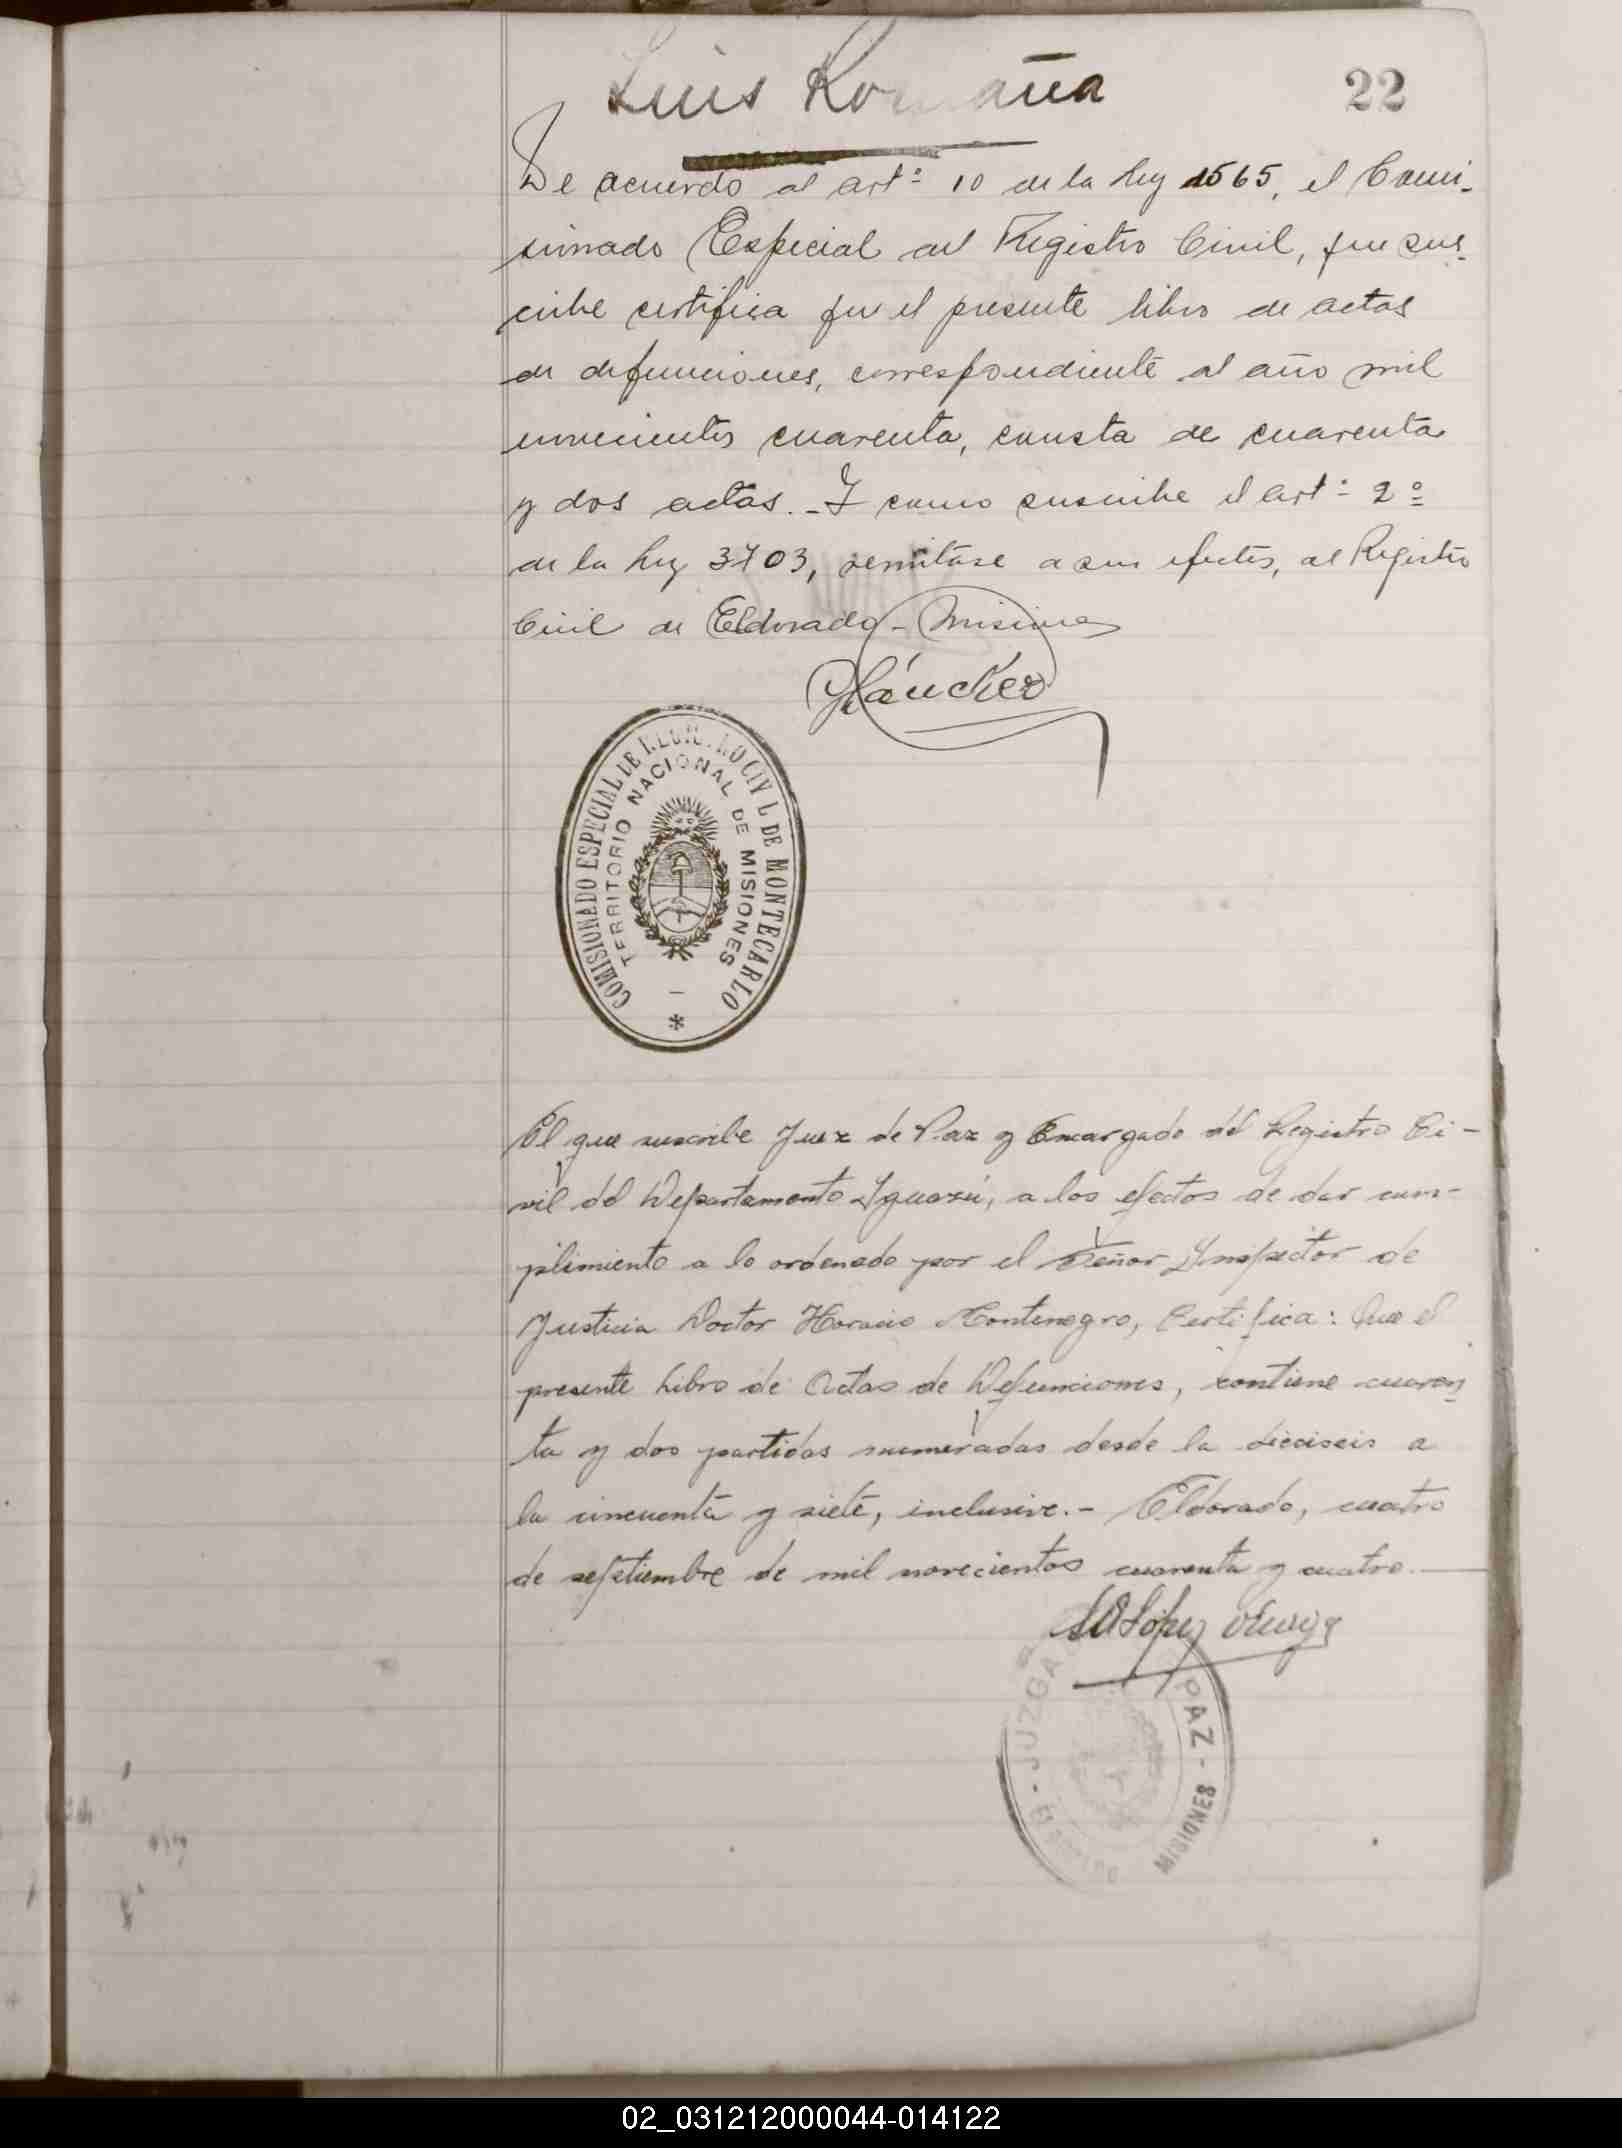 Luis Romaña
22
De acuerdo al artº 10 de la Ley 1565, el Comi-
sionado Especial del Registro Civil, que sus-
cribe certifica que el presente libro de actas
de defunciones, correspondiente al año mil
novecientos cuarenta, consta de cuarenta
y dos actas. - Y como suscribe el artº 2º
de la Ley 3703, remítase a sus efectos, al Registro
Civil de Eldorado - Misiones
Sánchez
COMISIONADO ESPECIAL DE CIVIL DE MONTECARLO
TERRITORIO NACIONAL DE MISIONES
El que suscribe Juez de Paz y Encargado del Registro Ci-
vil del Departamento Iguazú, a los efectos de dar cum-
plimiento a lo ordenado por el Señor Inspector de
Justicia Doctor Horacio Montenegro, Certifica: Que el
presente Libro de Actas de Defunciones, contiene cuaren-
ta y dos partidas numeradas desde la dieciseis a
la cincuenta y siete, inclusive. - Eldorado, cuatro
de septiembre de mil novecientos cuarenta y cuatro.
López
JUZGADO PAZ - MISIONES
02_031212000044-014122